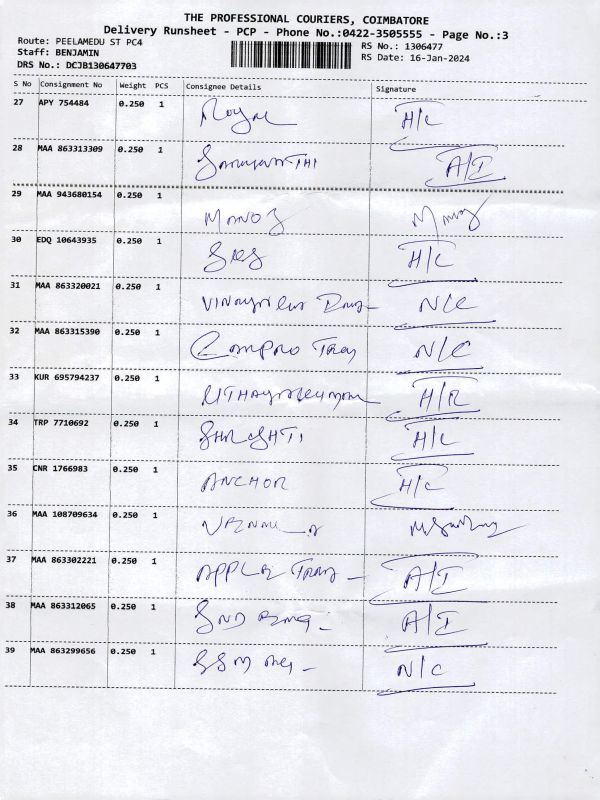 THE PROFESSIONAL COURIERS, COIMBATORE
Delivery Runsheet - PCP - Phone No.:0422-3505555 - Page No.:3
Route: PEELAMEDU ST PC4 RS No.: 1306477
Staff: BENJAMIN RS Date: 16-Jan-2024
DRS No.: DCJB130647703
S No Consignment No Weight PCS Consignee Details Signature
27 APY 754484 0.250 1 Royal H/C
28 MAA 863313309 0.250 1 A/I
29 MAA 943680154 0.250 1 MANOJ Manoj
30 EDQ 10643935 0.250 1 H/C
31 MAA 863320021 0.250 1 N/C
32 MAA 863315390 0.250 1 N/C
33 KUR 695794237 0.250 1 H/R
34 TRP 7710692 0.250 1 H/C
35 CNR 1766983 0.250 1 ANCHOR H/C
36 MAA 108709634 0.250 1
37 MAA 863302221 0.250 1 APPLE A/I
38 MAA 863312065 0.250 1 A/I
39 MAA 863299656 0.250 1 SSM N/C